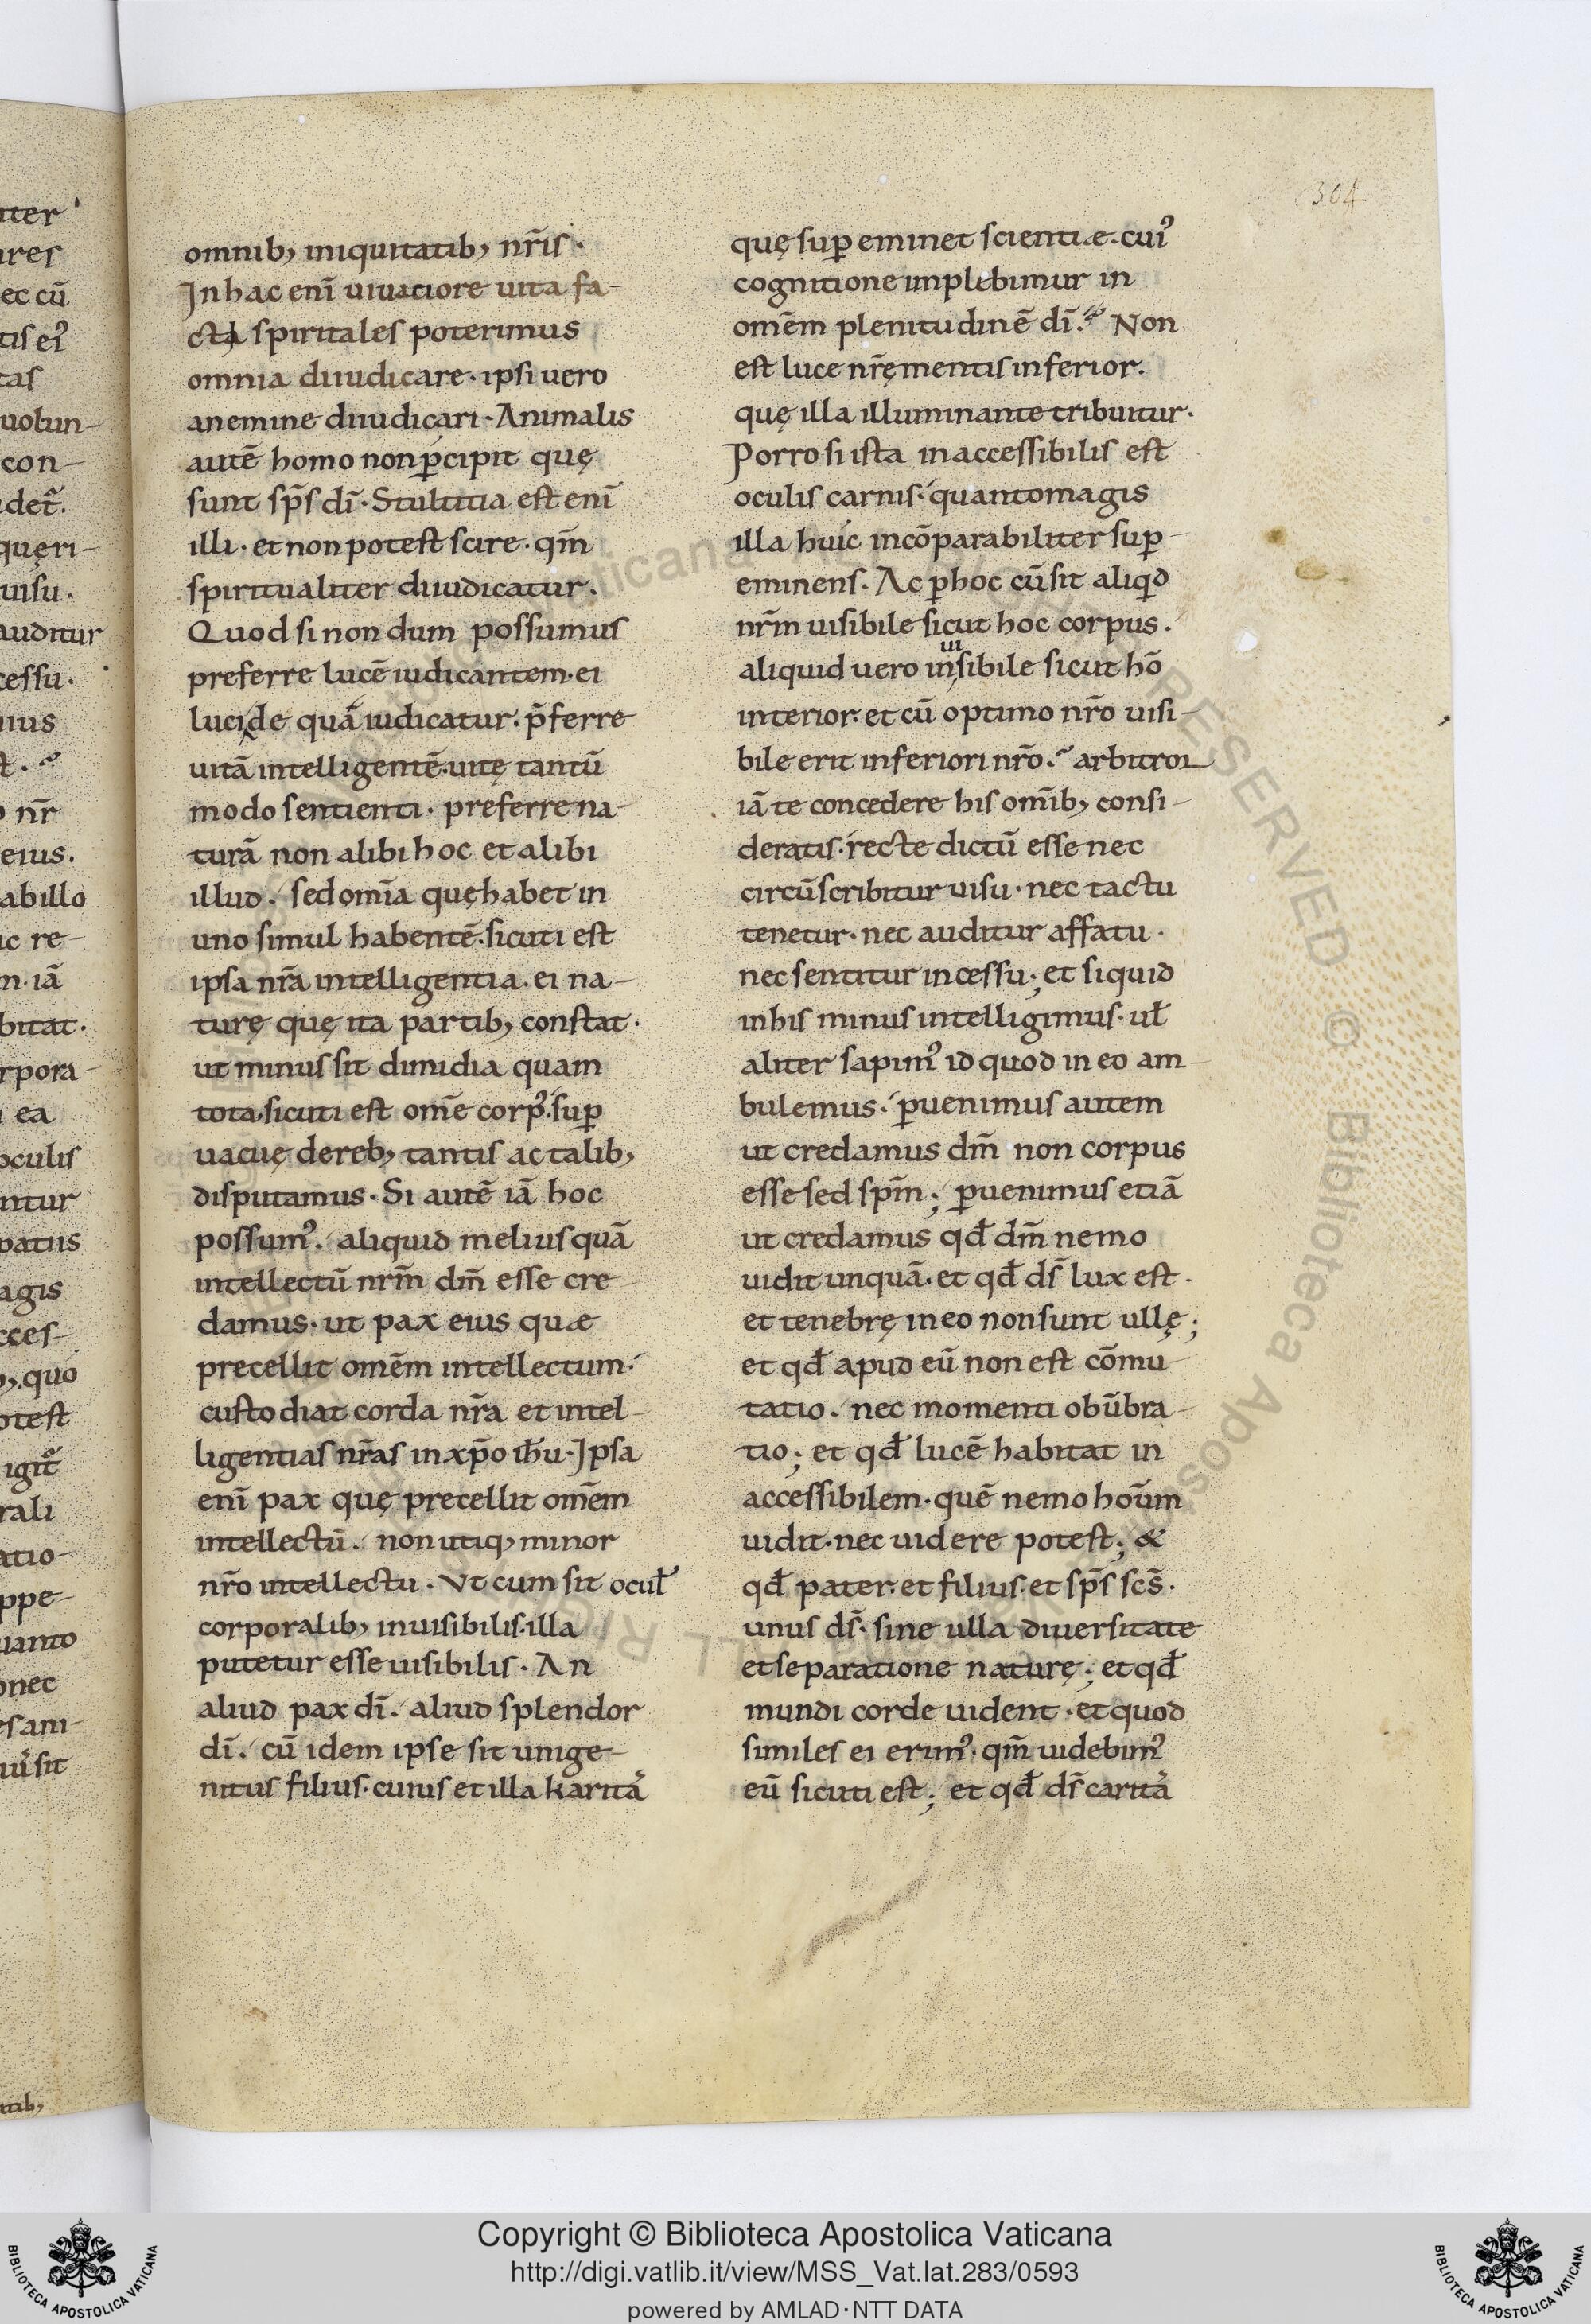 omnib, iniquitatib, nr̄is.
In hac enī uiuaciore uita fa-
cti spiritales poterimus
omnia diiudicare. ipsi uero
anemine diiudicari. Animalis
autē homo non p̄cipit quę
sunt sp̄s dī. Stultitia est enī
illi. et non potest scire. qm̄
spiritualiter diiudicatur.
Quod si non dum possumus
preferre lucē iudicantem. ei
luci de quā iudicatur. p̄ferre
uitā intelligentē. uitę tantū
modo sentienti. preferre na-
turā non alibi hoc et alibi
illud. sed omīa quę habet in
uno simul habentē. sicuti est
ipsa nr̄a intelligentia. ei na-
turę quę ita partib, constat.
ut minus sit dimidia quam
tota. sicuti est om̄e corp᾿. sup̄
uacuę dereb, tantis ac talib,
disputamus. Si autē iā hoc
possum᾿. aliquid melius quā
intellectū nrm̄ dm̄ esse cre
damus. ut pax eius quae
precellit omēm intellectum.
custodiat corda nr̄a et intel-
ligentias nr̄as in xp̄o ih̄u. Ipsa
enī pax quę precellit omēm
intellectū. non utiq, minor
nr̄o intellectu. Vt cum sit ocul̄
corporalib, inuisibilis. illa
putetur esse uisibilis. An
aliud pax dī. aliud splendor
dī. cū idem ipse sit unige-
nitus filius. cuius et illa karita᾿
quę sup̄ eminet scientiae. cui᾿
cognitione implebimur in
omēm plenitudinē dī. Non
est luce nr̄ę mentis inferior.
quę illa illuminante tribuitur.
Porro si ista inaccessibilis est
oculis carnis. quantomagis
illa huic incōparabiliter sup̄-
eminens. Ac p̄ hoc cū sit aliqd̄
nr̄m uisibile sicut hoc corpus.
aliquid vero inuisibile sicut hō
interior. et cū optimo nr̄o uisi-
bile erit inferiori nr̄o. arbitror
iā te concedere his omīb, consi-
deratis. recte dictū esse nec
circūscribitur uisu. nec tactu
tenetur. nec auditur affatu.
nec sentitur incessu; et siquid
inhis minus intelligimus. ul̄
aliter sapim᾿ id quod in eo am-
bulemus. p̄uenimus autem
ut credamus dm̄ non corpus
esse sed spm̄; p̄uenimus etiā
ut credamus qd̄ dm̄ nemo
uidit unquā. et qd̄ ds̄ lux est.
et tenebrę ineo non sunt ullę;
et qd̄ apud eū non est cōmu-
tatio. nec momenti obūbra-
tio; et qd̄ lucē habitat in
accessibilem. quē nemo hoūm
uidit. nec uidere potest; &
qd̄ pater. et filius. et sp̄s scs̄.
unus ds̄. sine ulla diuersitate
et separatione naturę; et qd̄
mundi corde uident. et quod
similes ei erim᾿. qm̄ uidebim᾿
eū sicuti est; et qd̄ ds̄ carita᾿
304
Copyright © Biblioteca Apostolica Vaticana
http://digi.vatlib.it/view/MSS_Vat.lat.283/0593
powered by AMLAD·NTT DATA